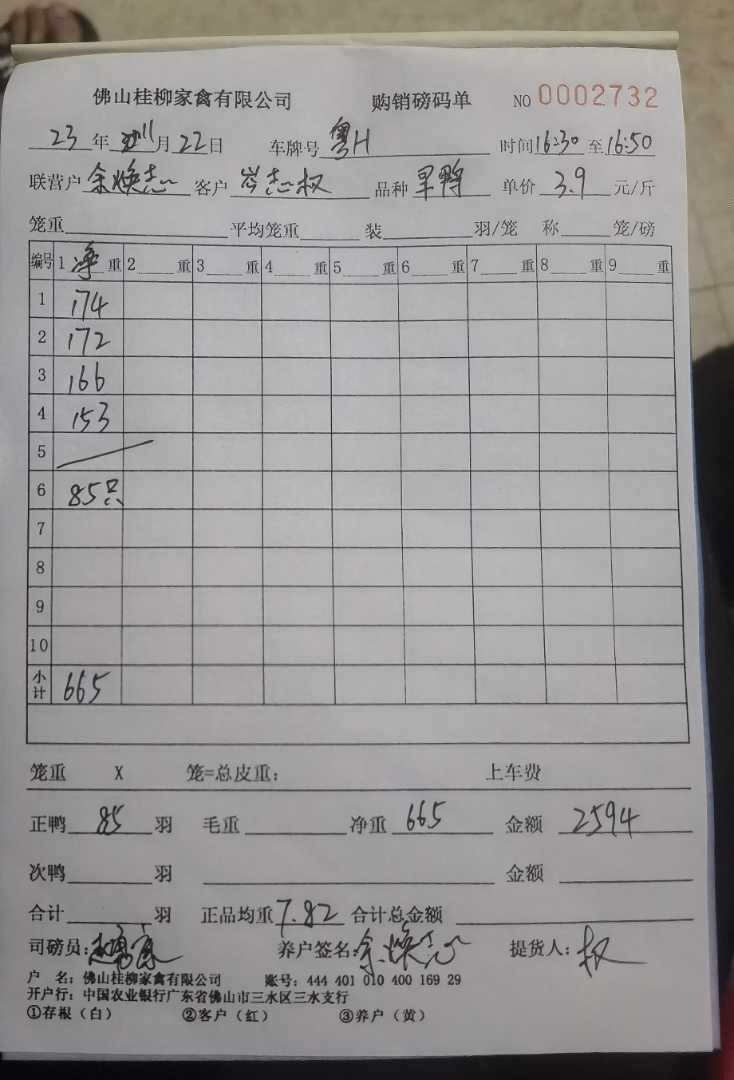 佛山桂柳家禽有限公司 购销磅码单 NO 0002732
23年11月22日 车牌号 粤H 时间16:30至16:50
联营户 余焕志 客户 岑志权 品种 旱鸭 单价 3.9 元/斤
笼重 平均笼重 装 羽/笼 称 笼/磅
编号 1 净 重 2 重 3 重 4 重 5 重 6 重 7 重 8 重 9 重
1 174
2 172
3 166
4 153
5
6 85只
7
8
9
10
小计 665
笼重 X 笼=总皮重: 上车费
正鸭 85 羽 毛重 净重 665 金额 2594
次鸭 羽 金额
合计 羽 正品均重 7.82 合计总金额
司磅员: 养户签名: 余焕志 提货人: 权
户 名: 佛山桂柳家禽有限公司 账号: 444 401 010 400 169 29
开户行: 中国农业银行广东省佛山市三水区三水支行
①存根(白) ②客户(红) ③养户(黄)